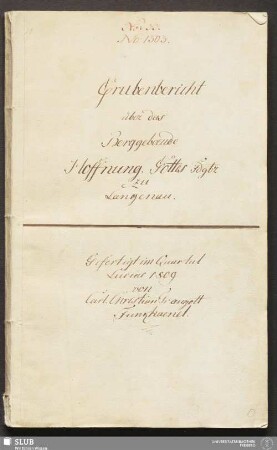 Grubenbericht
über das
Berggebäude
Hoffnung Gottes Fdgbz
zu
Langenau.
Gefertigt im Quartal
Luciae 1809
von
Carl Christian
Funkhaenel
SLUB
Wir führen Wissen.
UNIVERSITÄTSBIBLIOTHEK
FREIBERG